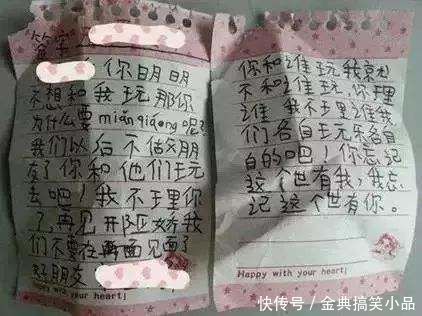 你明明
不想和我玩那你
为什么要miǎnqiǎng呢?
我们以后不做朋
友了你和他们玩
去吧!我不理你
了,再见
们不要在再面见面了
好朋友
Happy with your heart!
你和谁玩我就
不和谁玩,你理
谁我不理谁我
们各自玩乐各自
自的吧!你忘记
这个世有我,我忘
记这个世有你。
Happy with your heart!
快传号/金典搞笑小品